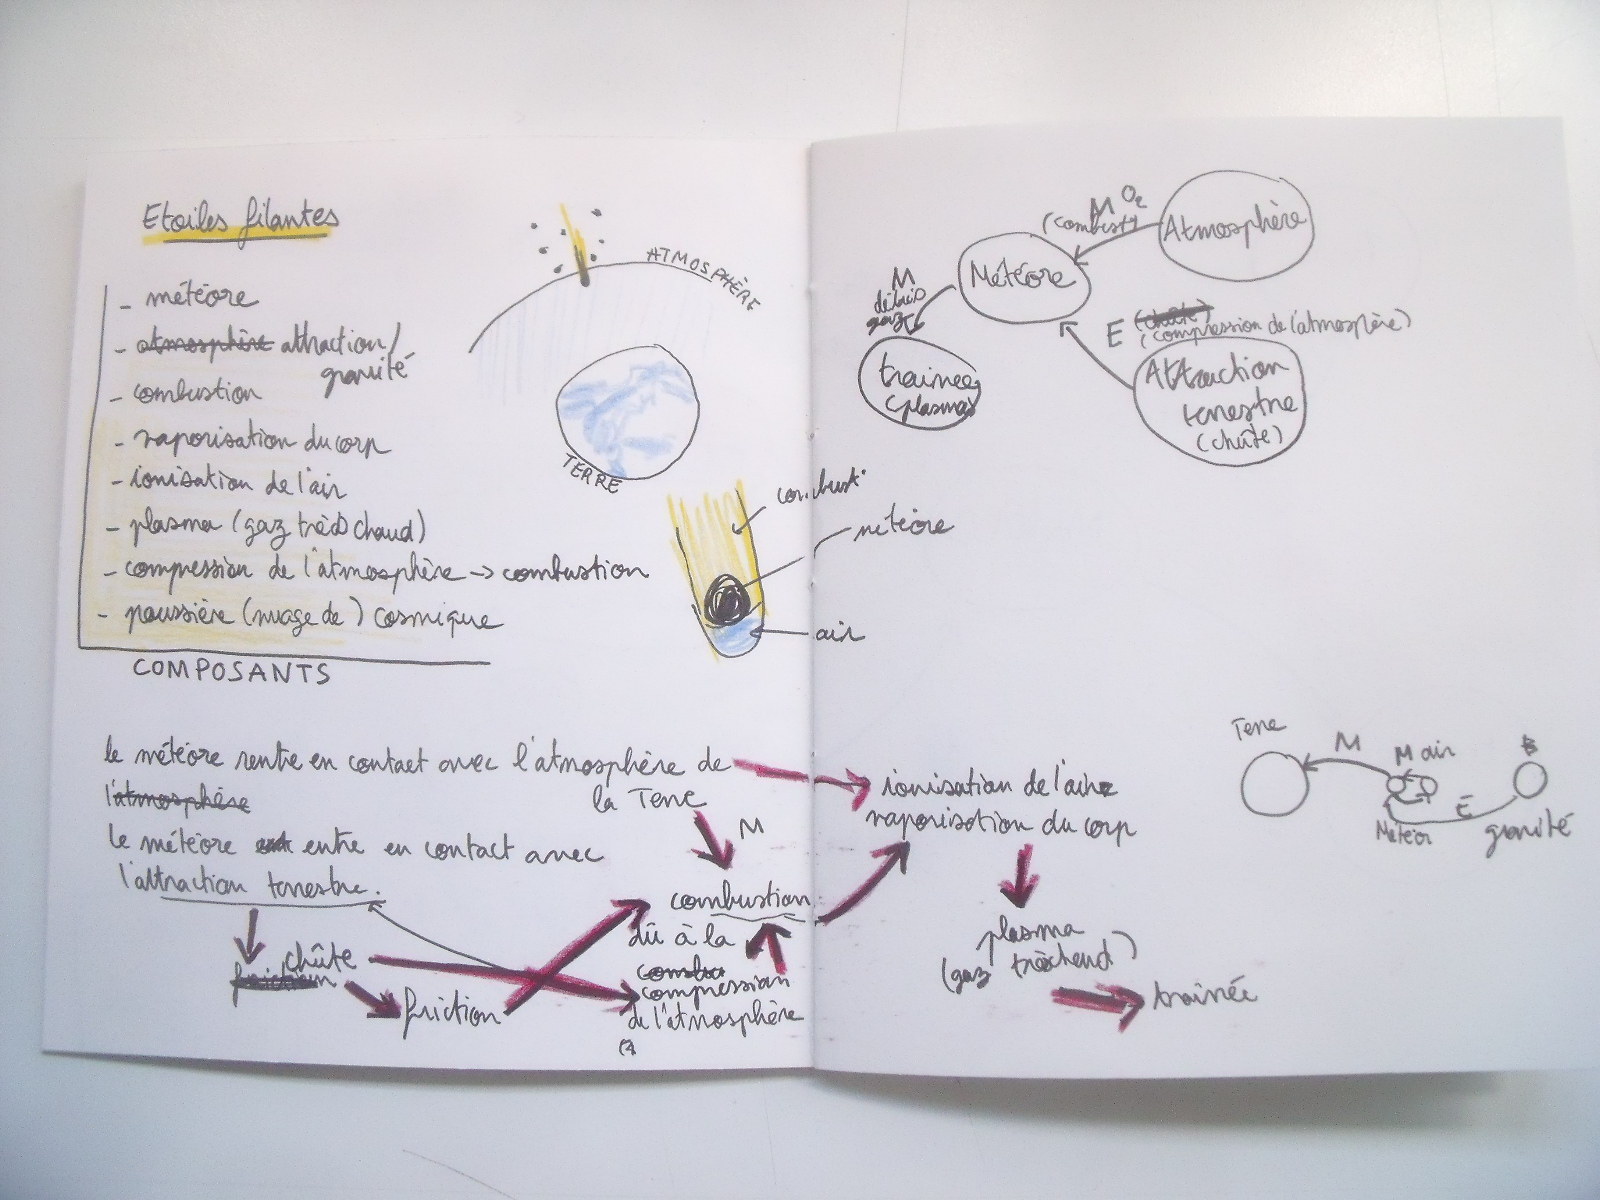 Etoiles filantes
- météore
- atmosphère attraction/
gravité
- combustion
- vaporisation du corp
- ionisation de l'air
- plasma (gaz très chaud)
- compression de l'atmosphère -> combustion
- poussière (nuage de) cosmique
COMPOSANTS
ATMOSPHÈRE
TERRE
combust°
météore
air
le météore rentre en contact avec l'atmosphère de
l'atmosphère la Terre
le météore entre en contact avec
l'attraction terrestre.
M
combustion
dû à la
compression
de l'atmosphère
chûte
friction
friction
ionisation de l'air
vaporisation du corp
plasma
(gaz très chaud)
trainée
Atmosphère
M O2
(combust°)
Météore
M
débris
gaz
trainée
(plasma)
E (chûte)
(compression de l'atmosphère)
Attraction
terrestre
(chûte)
Terre
M
M air
Météor
E
gravité